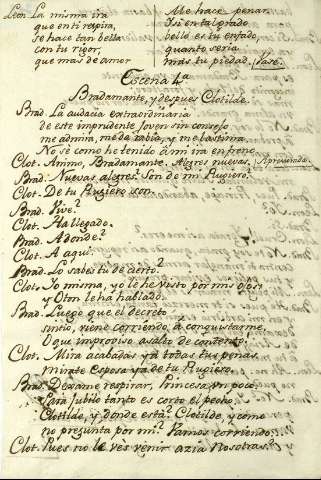 Leon. La misma ira
que en ti respira,
se hace tan bella
con tu rigor,
que mas de amor
Me hace penar.
Y si en tal grado
bello es tu enfado,
quanto seria
mas tu piedad. Vase.
Escena 4ª
Bradamante, y despues Clotilde.
Brad. La audacia extraordinaria
de este imprudente Joven sin consejo
me admira, me da rabia, y me lastima.
No sé como he tenido á mi ira en freno.
Clot. Animo, Bradamante. Alegres nuevas. Apresurada.
Brad. Nuevas alegres? Son de mi Rugiero?
Clot. De tu Rugiero son.
Brad. Vive?
Clot. Ha llegado.
Brad. Adonde?
Clot. A aqui.
Brad. Lo sabes tu de cierto?
Clot. Yo misma, yo le he visto por mis ojos
y Oton le ha hablado.
Brad. Luego que el decreto
sintio, viene corriendo, á conquistarme.
O que improviso asalto de contento!
Clot. Mira acabadas ya todas tus penas.
mirate Esposa ya de tu Rugiero.
Brad. Dexame respirar, Princesa, un poco.
Para Jubilo tanto es corto el pecho.
Clotilde, y donde está? Clotilde, y como
no pregunta por mi? Vamos corriendo.
Clot. Pues no le vès venir azia Nosotras?